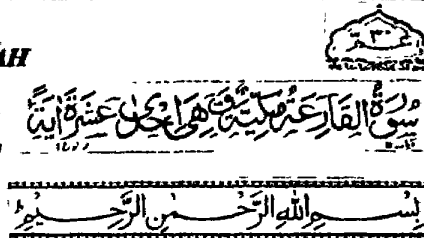 AH
عم ٣٠
سُوْرَةُ الْقَارِعَةِ مَكِّيَّةٌ وَّهِيَ اِحْدٰى عَشَرَةَ اٰيَةً
بِسْمِ اللهِ الرَّحْمٰنِ الرَّحِيْمِ